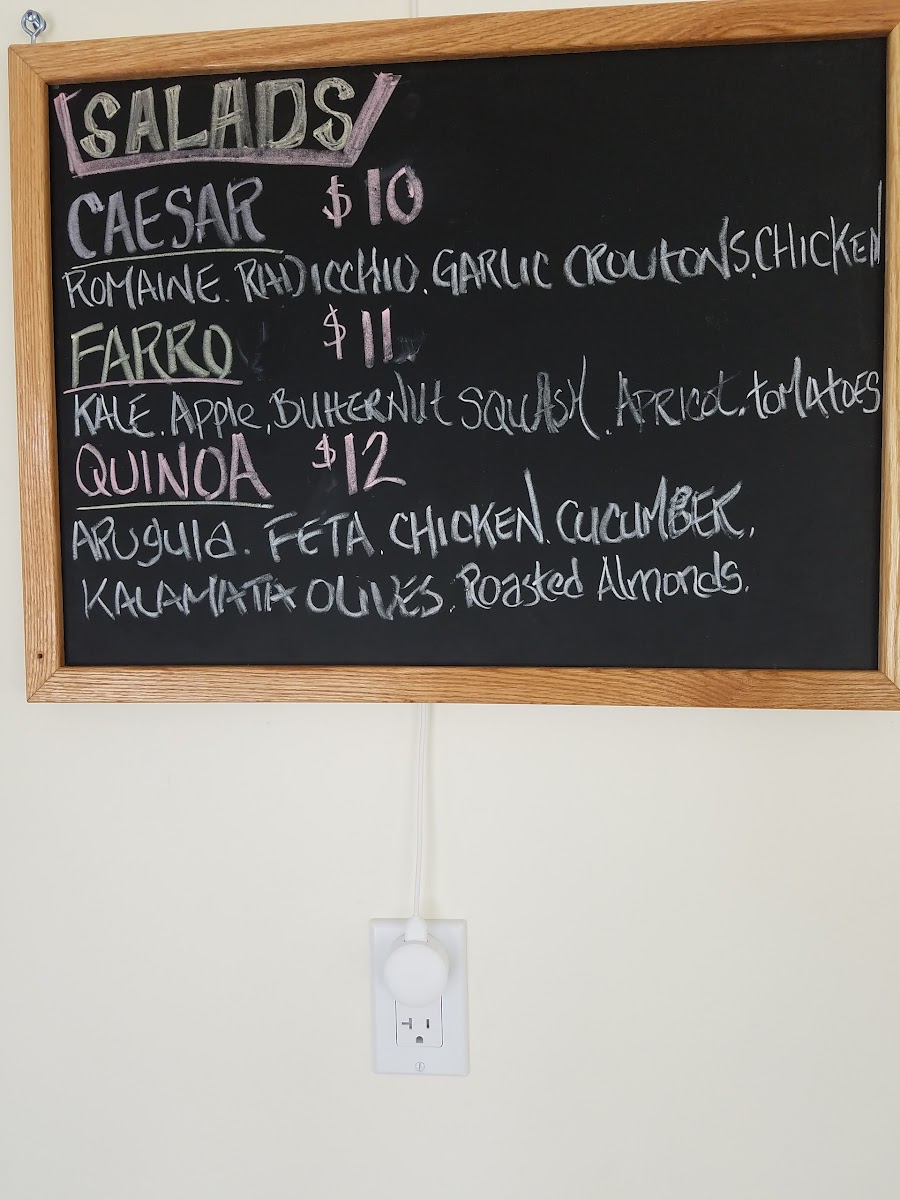 SALADS
CAESAR $10
ROMAINE. RADICCHIO. GARLIC CROUTONS. CHICKEN
FARRO $11
KALE. Apple. BUTTERNUT SQUASH. APRICOT. tOMATOES
QUINOA $12
ARugula. FETA. CHICKEN. CUCUMBER.
KALAMATA OLIVES. Roasted Almonds.